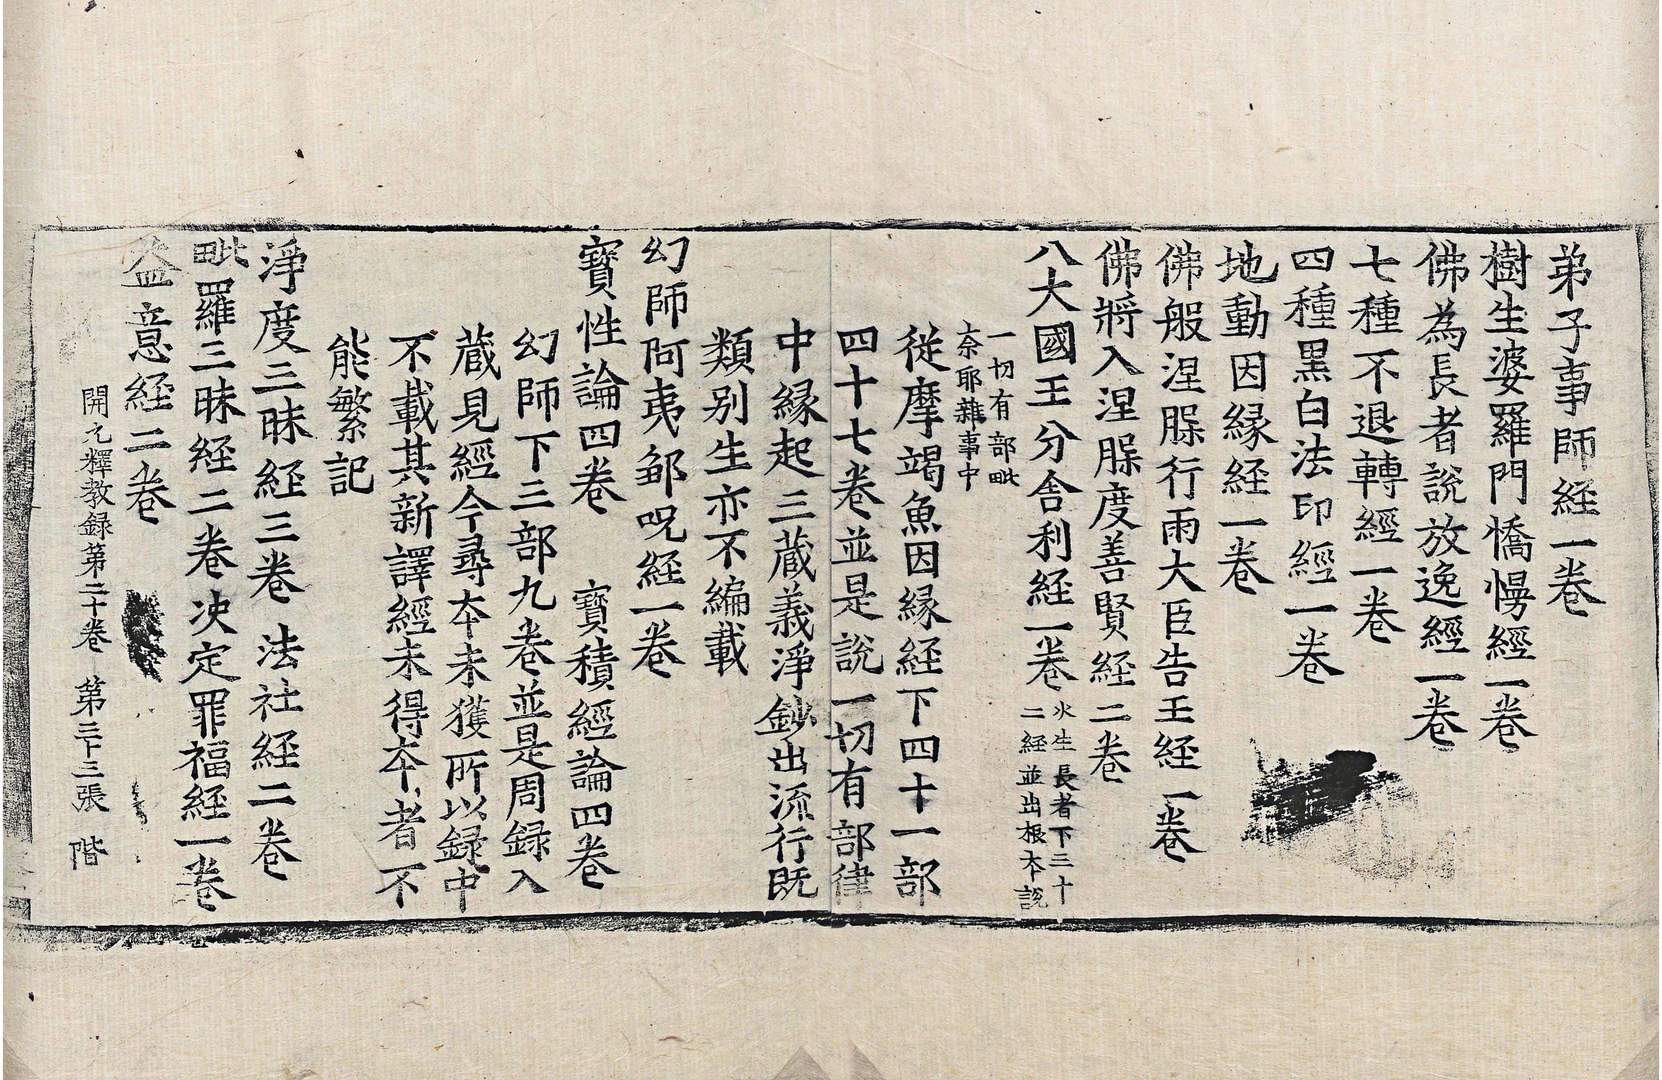 弟子事師経一卷
樹生婆羅門憍慢經一卷
佛為長者說放逸經一卷
七種不退轉經一卷
四種黑白法印經一卷
地動因縁経一卷
佛般涅脲行雨大臣告王経一卷
佛將入涅脲度善賢経二卷
八大國王分舍利経一卷
火生長者下三十
二経並出根夲說
一切有部毗
奈耶雜事中
從摩竭魚因縁経下四十一部
四十七卷並是說一切有部律
中縁起三蔵義淨鈔出流行既
類别生亦不編載
幻師阿夷鄒呪経一卷
寳性論四卷 寳積經論四卷
幻師下三部九卷並是周録入
蔵見經今尋夲未獲所以録中
不載其新譯經未得夲者不
能繁記
淨度三昧経三卷 法社経二卷
毗羅三昧経二卷决定罪福経一卷
益意経二卷
開元釋教録第二十卷 第三十三張 階